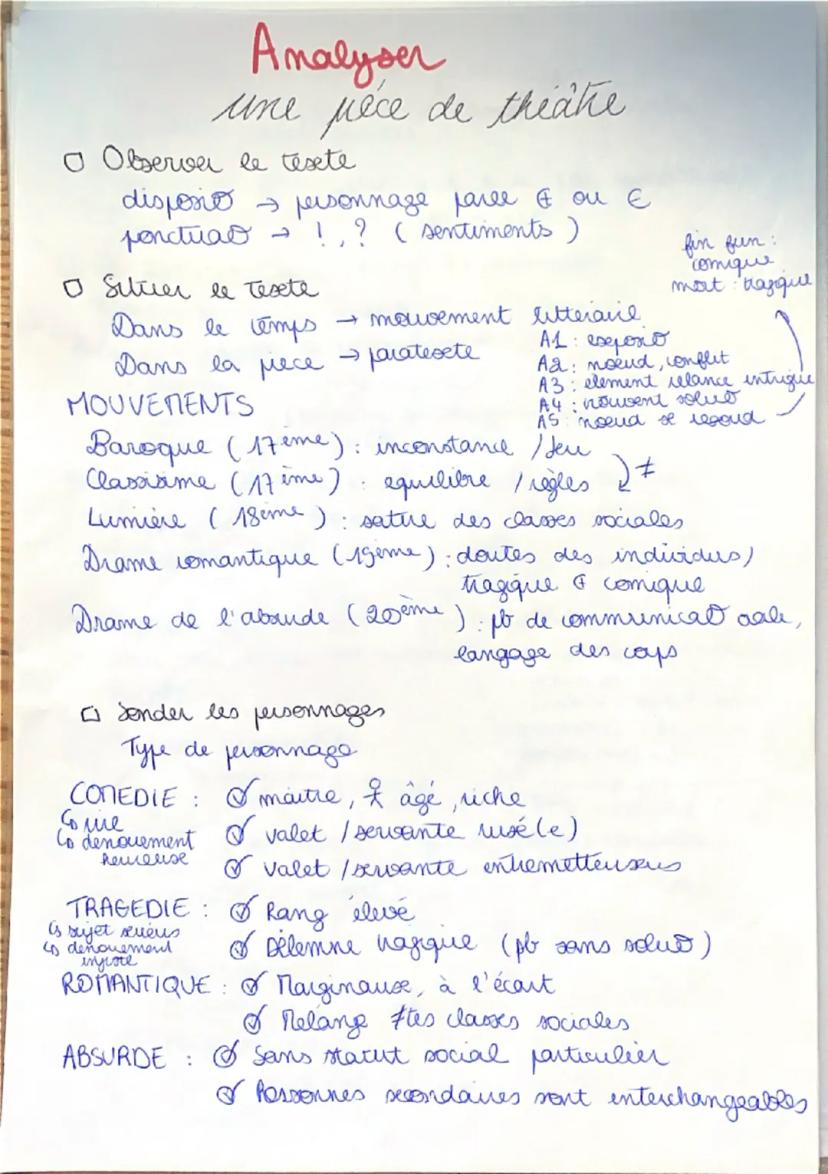 Analyser
une pièce de théâtre
□ Observer le texte
disposit° → personnage parle ⊕ ou ⊖
ponctuat° → !, ? (sentiments)
fin fun :
comique
mort : tragique
□ Situer le texte
Dans le temps → mouvement litteraire
Dans la piece → paratexte
A1 : exposit°
A2 : noeud, conflit
A3 : element relance intrigue
A4 : nouvent solut°
A5 : noeud se resoud
MOUVEMENTS
Baroque (17eme) : inconstance / Jeu
Classisime (17ème) : equilibre / règles ≠
Lumière (18ème) : satire des classes sociales
Drame romantique (19ème) : doutes des individus /
tragique & comique
Drame de l'absude (20ème) : pb de communicat° orale,
langage des corps
□ Sonder les personnages
Type de personnage
COMEDIE : maitre, âgé, riche
↳ rire
↳ denouement
heureuse
valet / servante rusé(e)
valet / servante entremetteuseus
TRAGEDIE : Rang élevé
↳ sujet serieus
↳ denouement
Dilemne tragique (pb sans solut°)
ROMANTIQUE : Marginause, à l'écart
Melange ≠tes classes sociales
ABSURDE : Sans statut social particulier
Personnes secondaires sont interchangeables